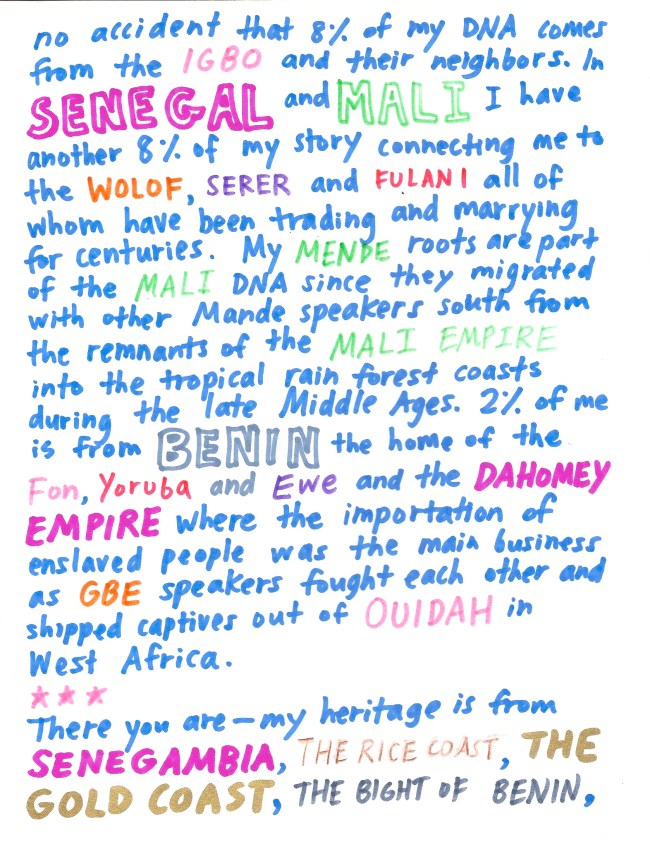 no accident that 8% of my DNA comes
from the IGBO and their neighbors. In
SENEGAL and MALI I have
another 8% of my story connecting me to
the WOLOF, SERER and FULANI all of
whom have been trading and marrying
for centuries. My MENDE roots are part
of the MALI DNA since they migrated
with other Mande speakers south from
the remnants of the MALI EMPIRE
into the tropical rain forest coasts
during the late Middle Ages. 2% of me
is from BENIN the home of the
Fon, Yoruba and Ewe and the DAHOMEY
EMPIRE where the importation of
enslaved people was the main business
as GBE speakers fought each other and
shipped captives out of OUIDAH in
West Africa.
***
There you are—my heritage is from
SENEGAMBIA, THE RICE COAST, THE
GOLD COAST, THE BIGHT OF BENIN,